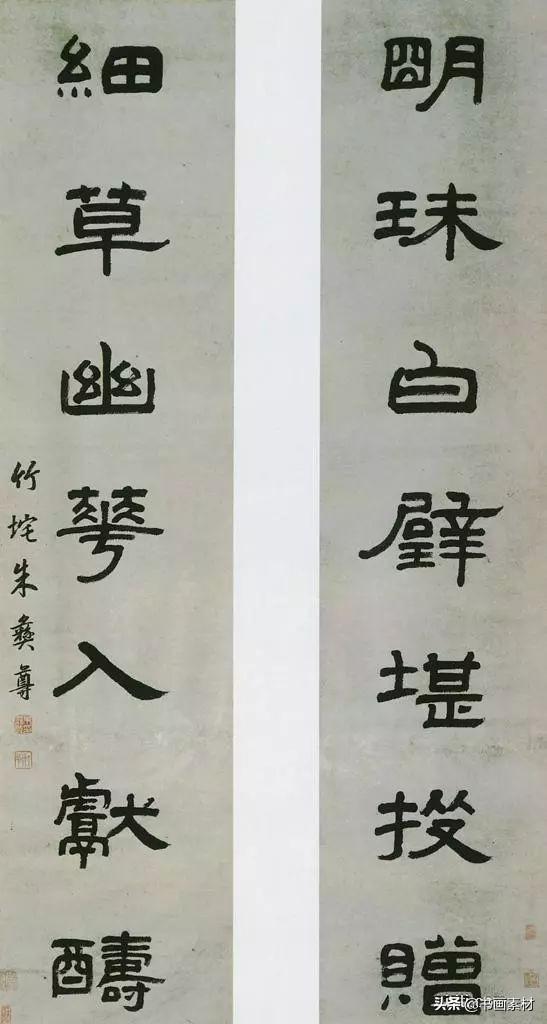 朙珠白璧堪投贈
細草幽華入獻醻
竹垞朱彝尊
头条@书画素材